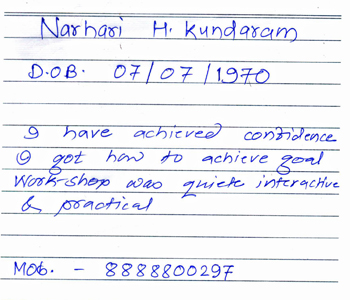 Narhari H. Kundaram
D.O.B. 07/07/1970
I have achieved confidence
I got how to achieve goal
Work-shop was quiete interactive
& practical
Mob. - 8888800297